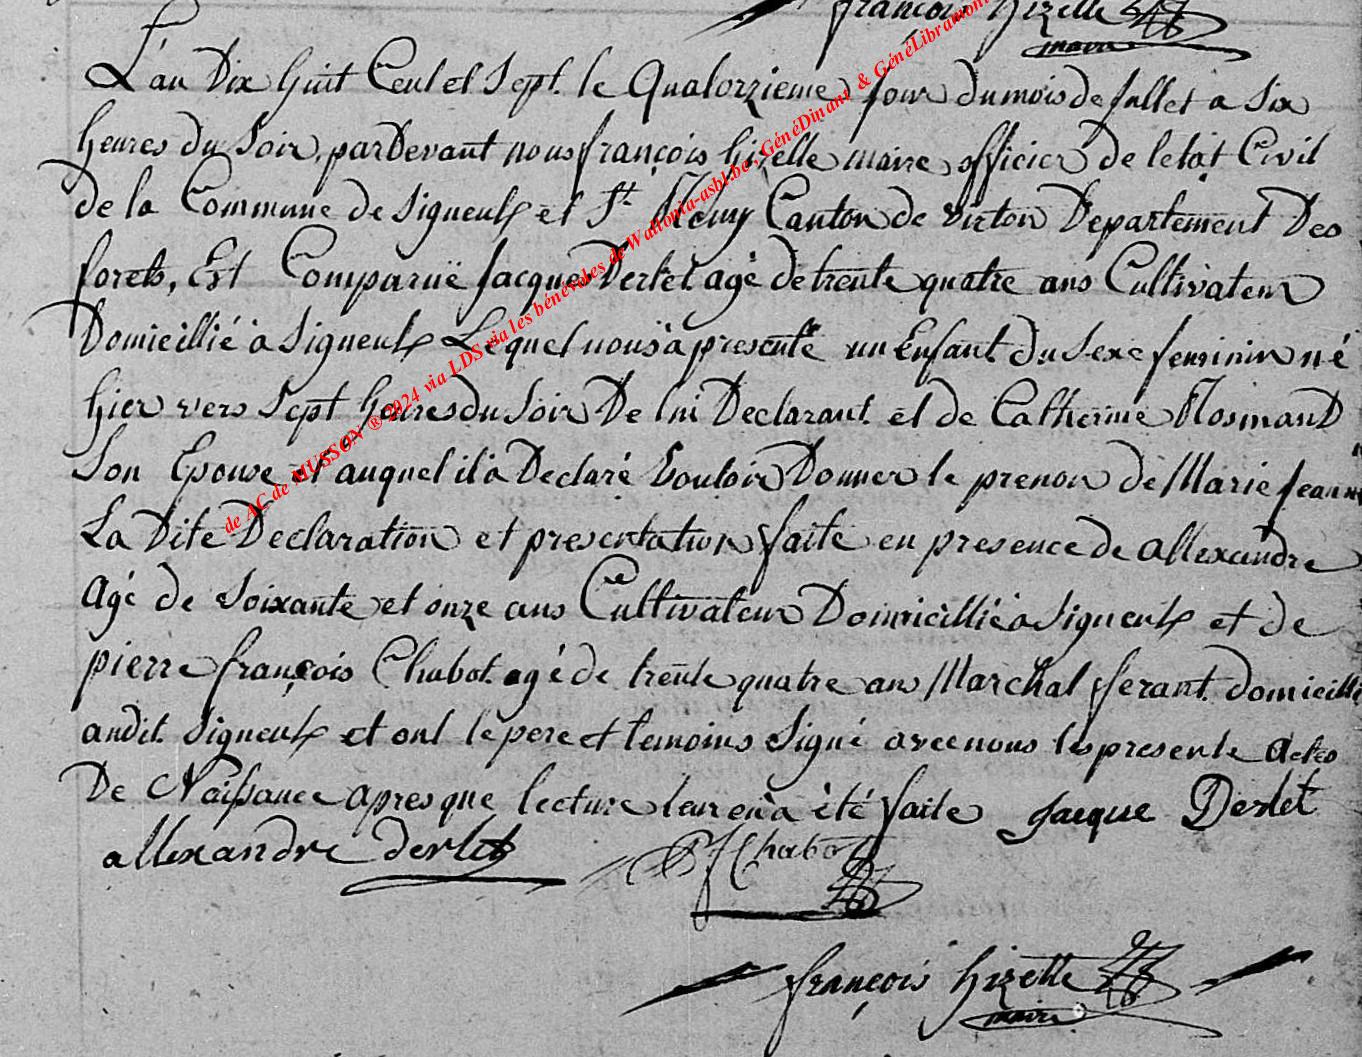 françois hizette
maire
L'an Dix huit Cent et Sept. le Quatorzieme jour du mois de Jullet a Six
heures du Soir, par Devant nous françois hizette maire officier de letat Civil
de la Commune de Signeulx et St. Remy Canton de virton Departement Des
forets, Est Comparuë Jacques Derlet agé de trente quatre ans Cultivateur
Domicillié a Signeulx Lequel nous a presenté un Enfant du Sexe feminin né
hier vers Sept heures du Soir De lui Declarant et de Catherine Rosmand
Son Epouse et auquel il a Declaré Vouloir Donner le prenon de Marie Jeanne
La Dite Declaration et presentation faite en presence de allexandre
Agé de Soixante et onze ans Cultivateur Domicillié a Signeulx et de
pierre françois Chabot agé de trente quatre ans Marchal ferant domicillié
audit Signeulx et ont le pere et temoins Signé avec nous les presente actes
De Naissance apres que lecture leur en a été faite Jacque Derlet
allexandre derlet PF Chabot
françois hizette
maire
de AC de MUSSON ® 2024 via LDS via les bénévoles de Wallonia-asbl.be, GénéDinant & GénéLibramont